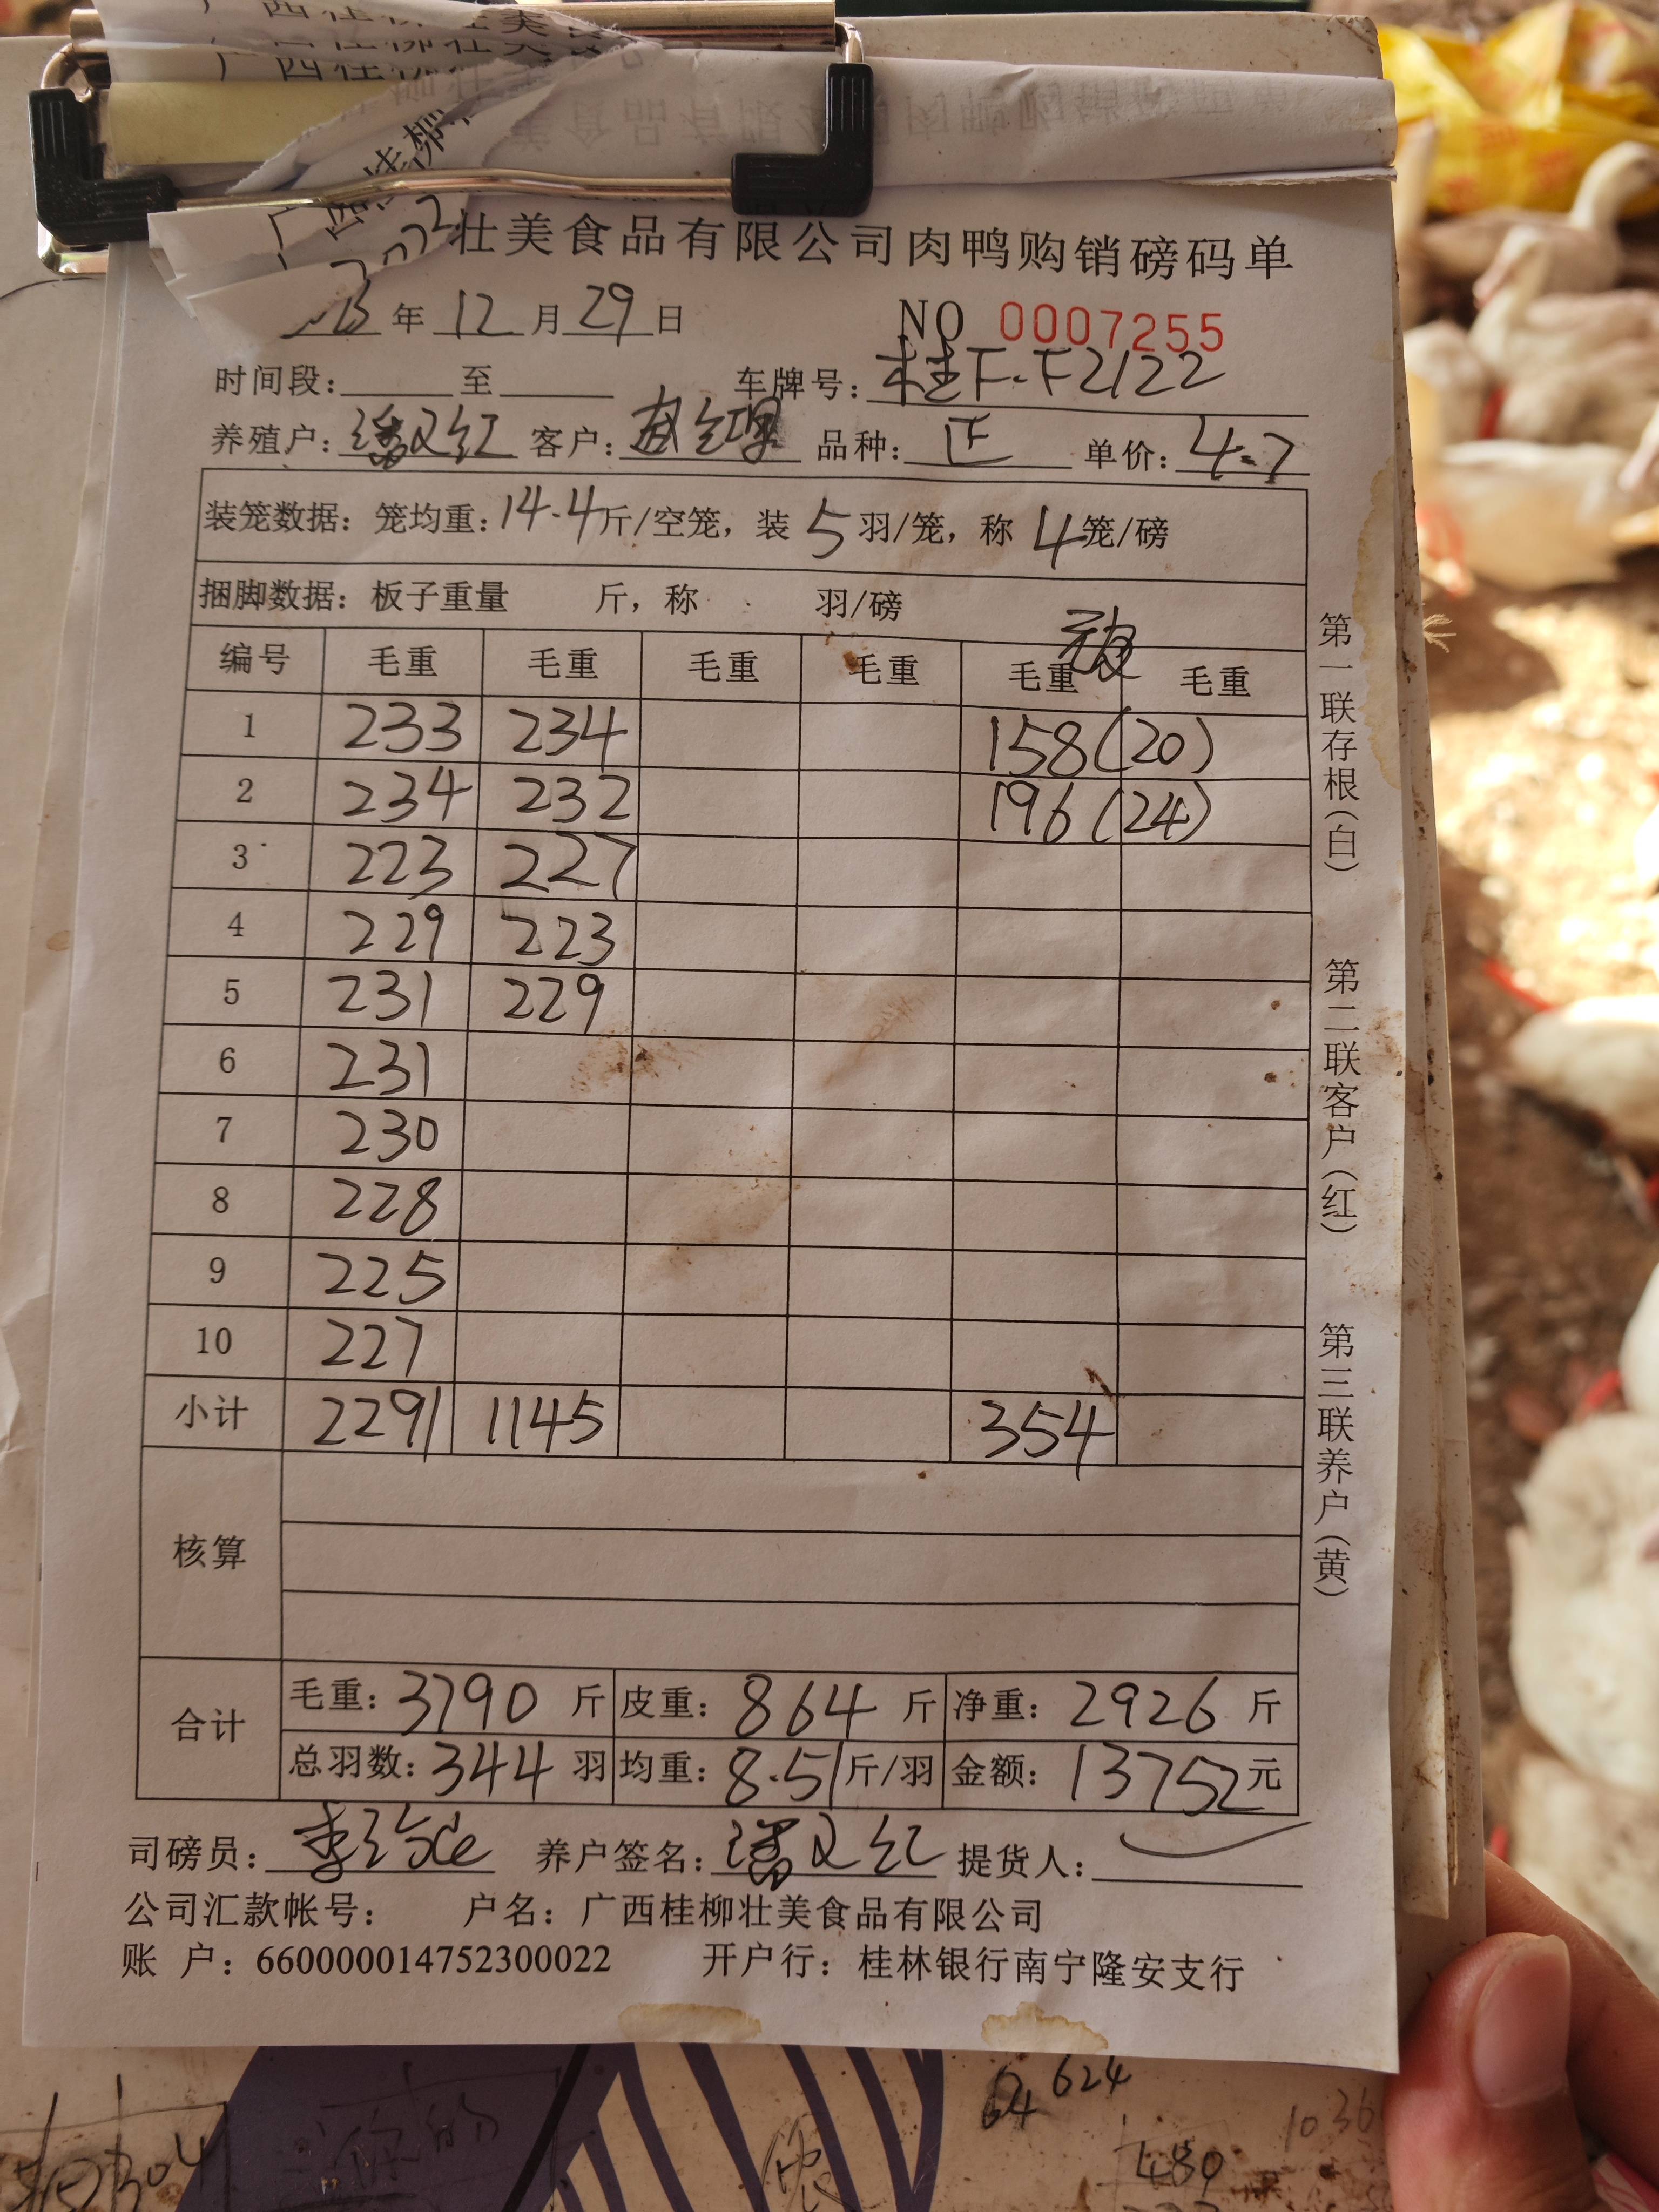 壮美食品有限公司肉鸭购销磅码单
年 12 月 29 日
NO 0007255
时间段: 至 车牌号: 桂F·F2122
养殖户: 潘又红 客户: 品种: 正 单价: 4.7
装笼数据: 笼均重: 14.4 斤/空笼, 装 5 羽/笼, 称 4 笼/磅
捆脚数据: 板子重量 斤, 称 羽/磅
编号 毛重 毛重 毛重 毛重 毛重 毛重
1 233 234 158 (20)
2 234 232 196 (24)
3 223 227
4 229 223
5 231 229
6 231
7 230
8 228
9 225
10 227
小计 2291 1145 354
核算
合计 毛重: 3790 斤 皮重: 864 斤 净重: 2926 斤
总羽数: 344 羽 均重: 8.51 斤/羽 金额: 13752 元
司磅员: 养户签名: 潘又红 提货人:
公司汇款帐号: 户名: 广西桂柳壮美食品有限公司
账 户: 660000014752300022 开户行: 桂林银行南宁隆安支行
第一联存根(白) 第二联客户(红) 第三联养户(黄)
624
64
1036
480